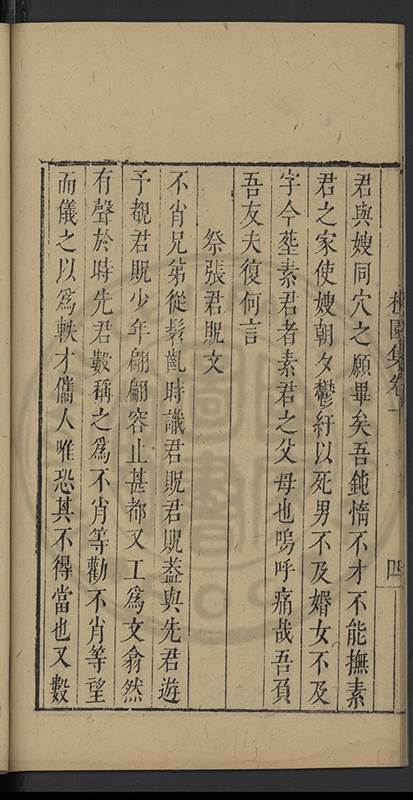 君與嫂同穴之願畢矣吾鈍惰不才不能撫素
君之家使嫂朝夕鬱紆以死男不及婚女不及
字今塟素君者素君之父母也嗚呼痛哉吾負
吾友夫復何言
祭張君貺文
不肖兄弟從髫齓時識君貺君貺葢與先君遊
予覩君貺少年翩翩容止甚都又工爲文翕然
有聲於時先君數稱之爲不肖等勸不肖等望
而儀之以爲軼才儕人唯恐其不得當也又數
園集卷
四